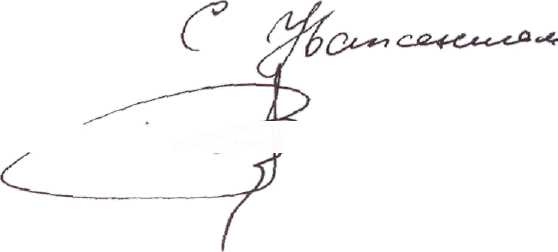 С Уважением